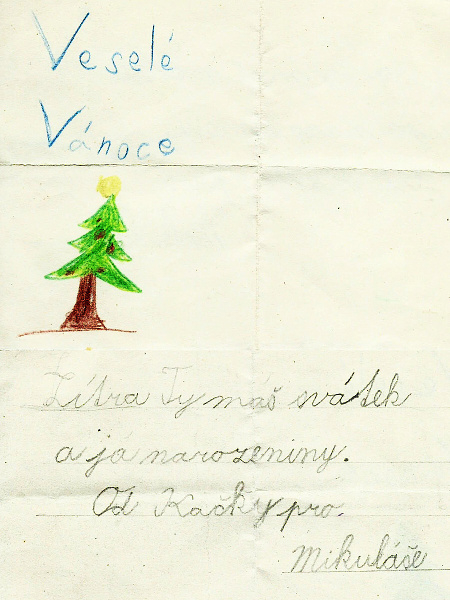 Veselé
Vánoce
Zítra Ty maš svátek
a ja narozeniny.
Od Kačky pro.
Mikuláše